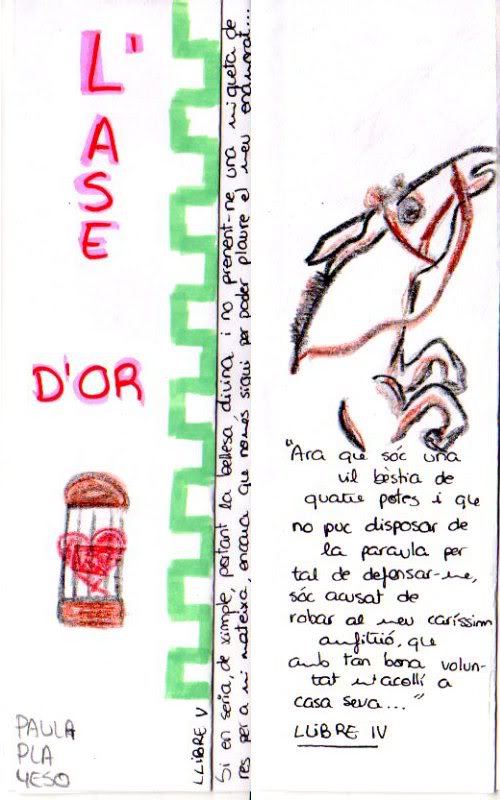 L'
A
S
E
D'OR
PAULA
PLA
YESO
LLIBRE V
Si en seria, de ximple, portant la bellesa divina i no prenent-ne una miqueta de
res per a mi mateixa, encara que només sigui per poder plaure el meu enamorat...
"Ara que sóc una
vil bèstia de
quatre potes i que
no puc disposar de
la paraula per
tal de defensar-me,
sóc acusat de
robar al meu caríssim
amfitrió, que
amb tan bona volun-
tat m'acollí a
casa seva..."
LLIBRE IV